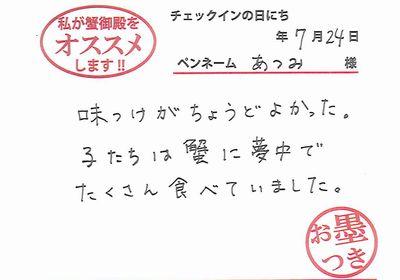 私が蟹御殿を
オススメ
します!!
チェックインの日にち
年7月24日
ペンネーム あつみ 様
味つけがちょうどよかった。
子たちは蟹に夢中で
たくさん食べていました。
お墨
つき